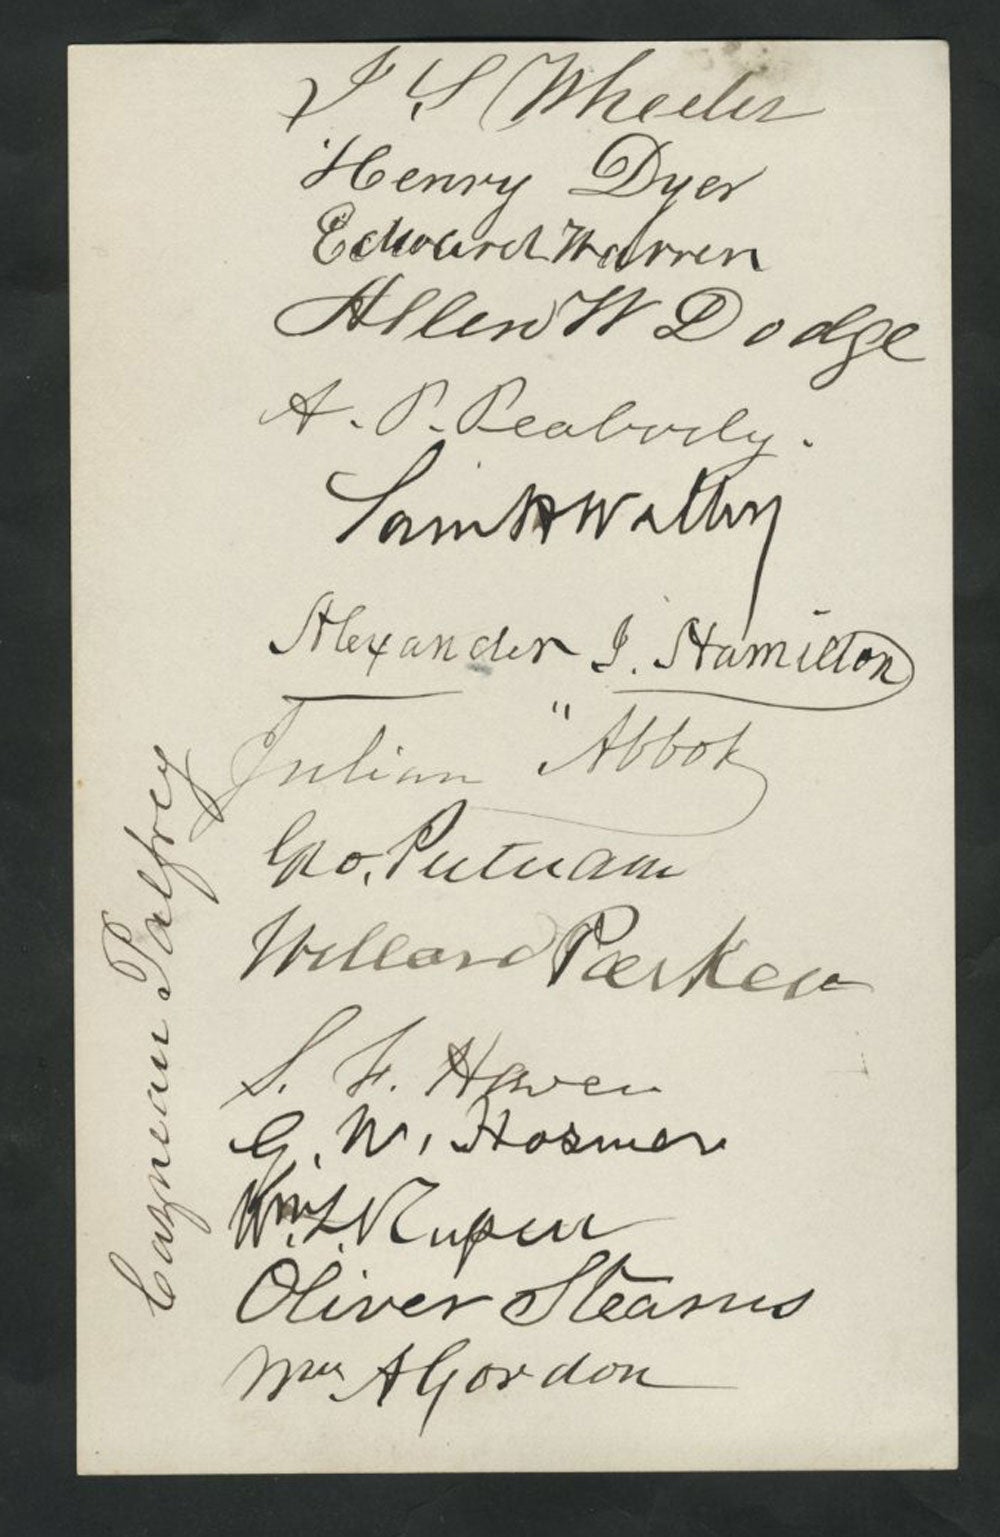 J S Wheeler
Henry Dyer
Edward Warren
Allen W Dodge
A. P. Peabody.
Sam H Walley
Alexander J. Hamilton
Julian Abbot
Geo. Putnam
Willard Parker
S. F. Haven
G. W. Hosmer
Wm. L.
Oliver Stearns
Wm A Gordon
Cazneau Palfrey